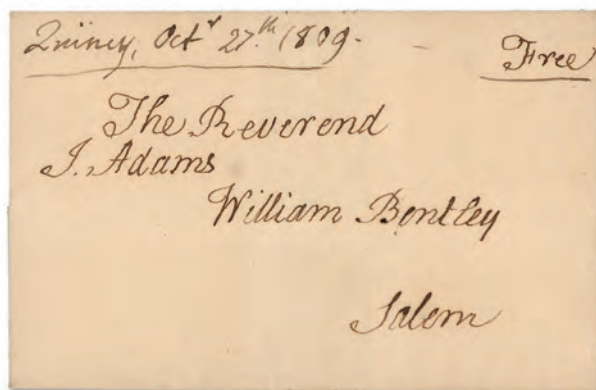 Quincy, Octr 27.th 1809. - Free
The Reverend
J. Adams
William Bentley
Salem